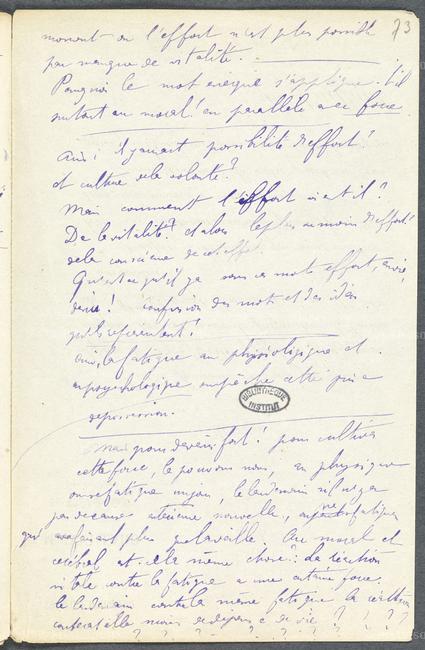 73
moment où l'effort n'est plus possible
par manque de vitalité.
Pourquoi le mot énergie s'applique-t-il
surtout au moral! en parallèle avec force
Ainsi il y aurait possibilité d'effort?
et culture de la volonté?
Mais comment l'effort vient il?
De la vitalité? et alors le plus ou moins d'effort
de la conscience de cet effort.
Qu'est ce qu'il y a sous ce mot effort, envie,
désir! confusion des mots et des idées
qu'ils représentent!
Ainsi la fatigue au physiologique et
au psychologique empêche cette prise
de possession.
Mais pour devenir fort! pour cultiver
cette force, le pouvons nous, au physique
on se fatigue un jour, le lendemain il n'y a
pas de cause nouvelle,
qu'en faisant plus de travail. Au moral et
cérébral est-ce la même chose? La réaction
vitale contre la fatigue a une certaine force.
le lendemain contre la même fatigue la réaction
moins de dépense de vie ? ? ? ?
BIBLIOTHÈQUE
INSTITUT